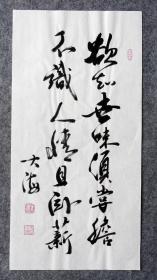 欲知世味須嘗膽
不識人情且卧薪
大海